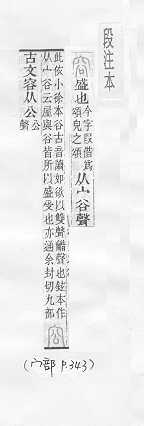 段注本
盛也今字叚借爲頌皃之頌从宀谷聲
此依小徐本谷古音讀如欲以雙聲龤聲也鉉本作
从宀谷云屋與谷皆所以盛受也亦通余封切九部
古文容从公公聲
(宀部 P.343)